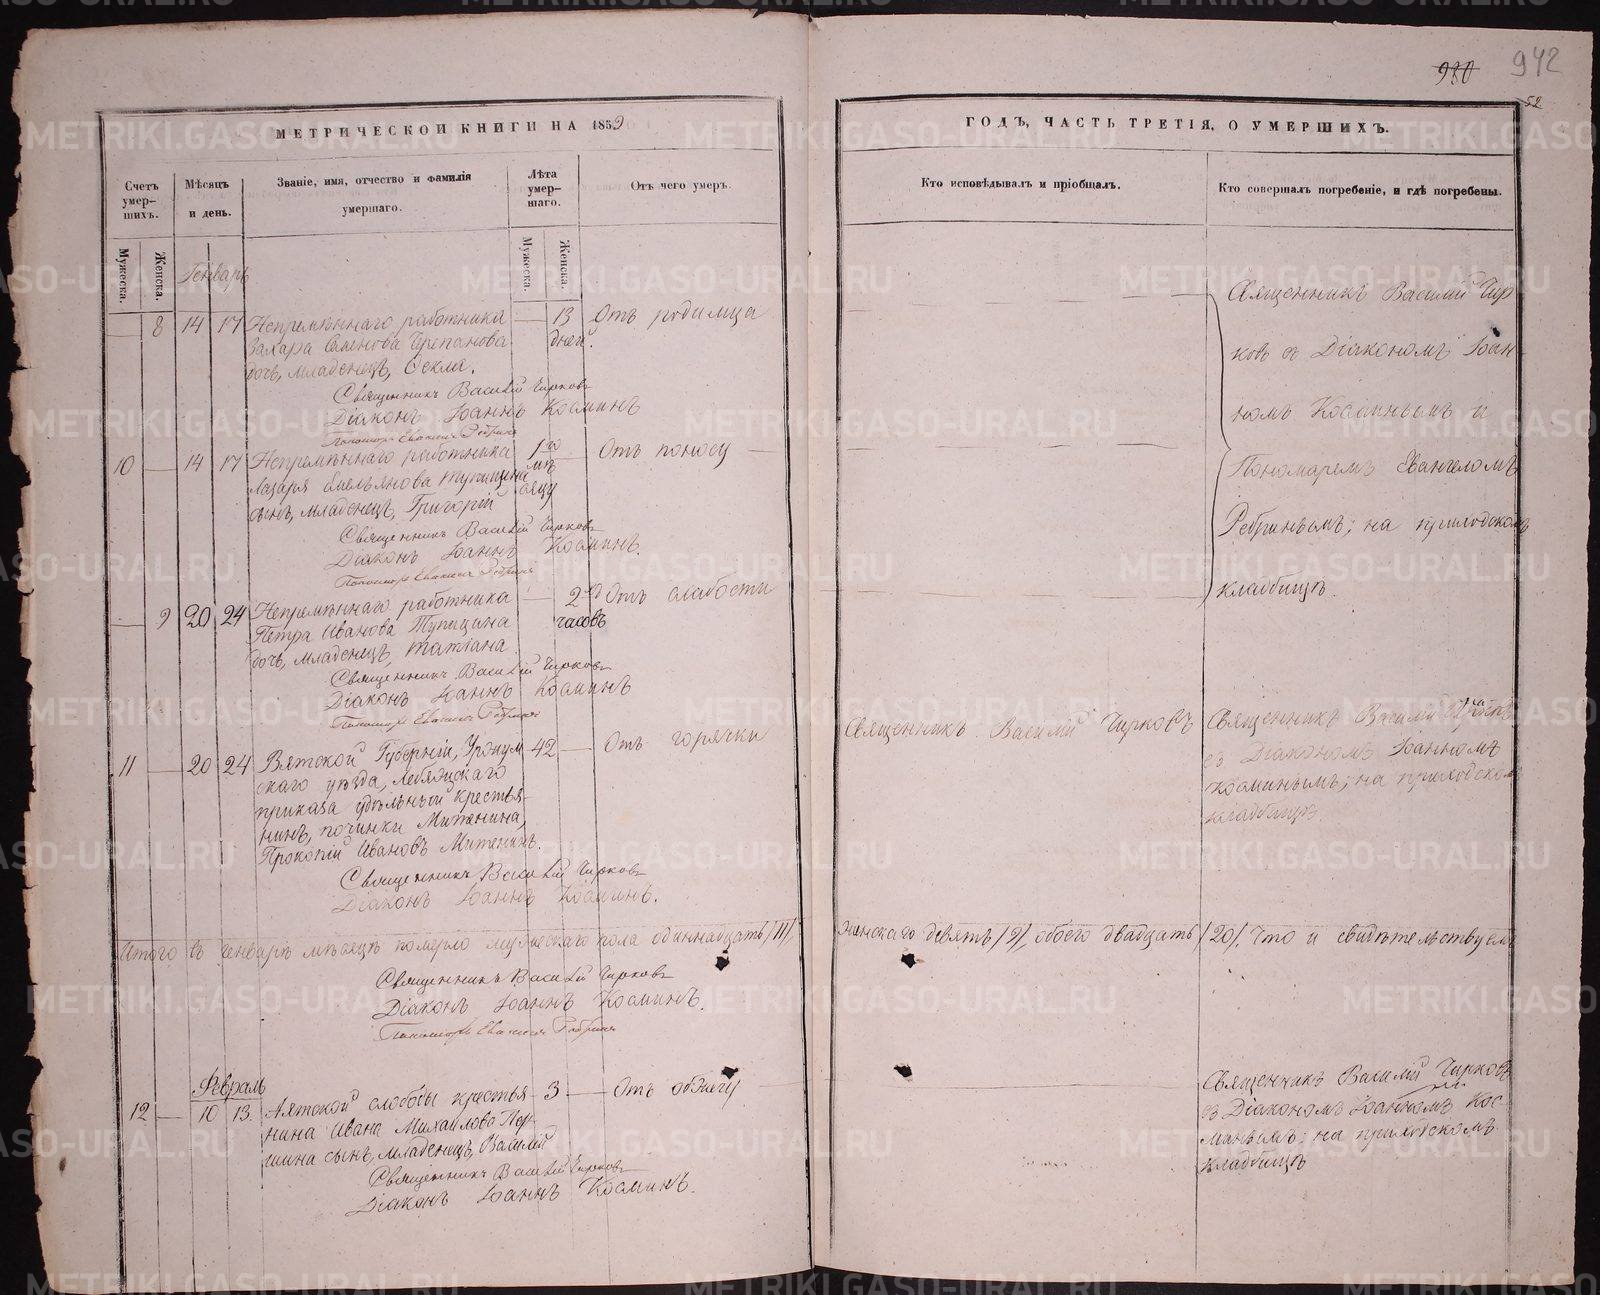 930 942
52
МЕТРИЧЕСКОЙ КНИГИ НА 1859
ГОДЪ, ЧАСТЬ ТРЕТІЯ, О УМЕРШИХЪ.
Счетъ умер-
шихъ.
Мѣсяцъ
и день.
Званіе, имя, отчество и фамилія
умершаго.
Лѣта
умер-
шаго.
Отъ чего умеръ.
Кто исповѣдывалъ и пріобщалъ.
Кто совершалъ погребеніе, и гдѣ погребены.
Мужеска.
Женска.
Мужеска.
Женска.
Генварь
8 14 17 Непремѣннаго работника 13 Отъ родимца
Захара Семенова Черепанова дней.
дочь, младенецъ, Фекла.
Священникъ Василій Чирковъ
Діаконъ Іоаннъ Косминъ
Пономарь Евангелъ Ребринъ
10 14 17 Непремѣннаго работника 1го Отъ поносу
Лазаря Емельянова Тупицына мѣ
сынъ, младенецъ, Григорій сяцу
Священникъ Василій Чирковъ
Діаконъ Іоаннъ Косминъ.
Пономарь Евангелъ Ребринъ
9 20 24 Непремѣннаго работника 2хъ Отъ слабости
Петра Иванова Тупицына часовъ
дочь, младенецъ, Татіана.
Священникъ Василій Чирковъ
Діаконъ Іоаннъ Косминъ
Пономарь Евангелъ Ребринъ
Священникъ Василій Чир-
ковъ съ Діакономъ Іоан-
номъ Косминымъ и
Пономаремъ Евангеломъ
Ребринымъ; на приходскомъ
кладбищѣ.
11 20 24 Вятской Губерніи, Уржум 42 Отъ горячки
скаго уѣзда, Лебяжскаго
приказа удѣльный крестья-
нинъ, починки Митенина,
Прокопій Ивановъ Митенинъ.
Священникъ Василій Чирковъ
Діаконъ Іоаннъ Косминъ.
Священникъ Василій Чирковъ
Священникъ Василій Чирковъ
съ Діакономъ Іоанномъ
Косминымъ; на приходскомъ
кладбищѣ.
Итого въ Генварѣ мѣсяцѣ померло мужескаго пола одиннадцать /11/, женскаго девять /9/, обоего двадцать /20/. Что и свидѣтельствуемъ
Священникъ Василій Чирковъ
Діаконъ Іоаннъ Косминъ.
Пономарь Евангелъ Ребринъ
Февраль
12 10 13. Аятской слободы крестья- 3 Отъ обжегу
нина Ивана Михайлова Пер-
шина сынъ, младенецъ, Василій
Священникъ Василій Чирковъ
Діаконъ Іоаннъ Косминъ.
Священникъ Василій Чирковъ
съ Діакономъ Іоанномъ Кос-
минымъ; на приходскомъ
кладбищѣ
METRIKI.GASO-URAL.RU